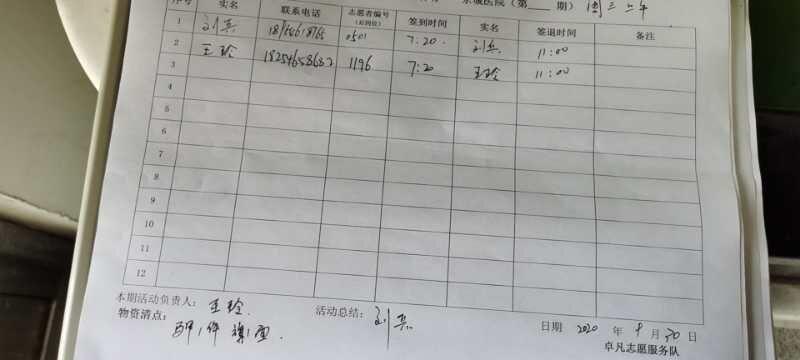 东城医院（第 期）周三上午
序号 实名 联系电话 志愿者编号 签到时间 实名 签退时间 备注
（后四位）
1 刘兵 0501 7:20. 刘兵 11:00
2 王玲 18254658682 1196 7:20 王玲 11:00
3
4
5
6
7
8
9
10
11
12
本期活动负责人： 王玲. 活动总结： 刘兵
物资清点：
日期 2020 年 9 月 30 日
卓凡志愿服务队